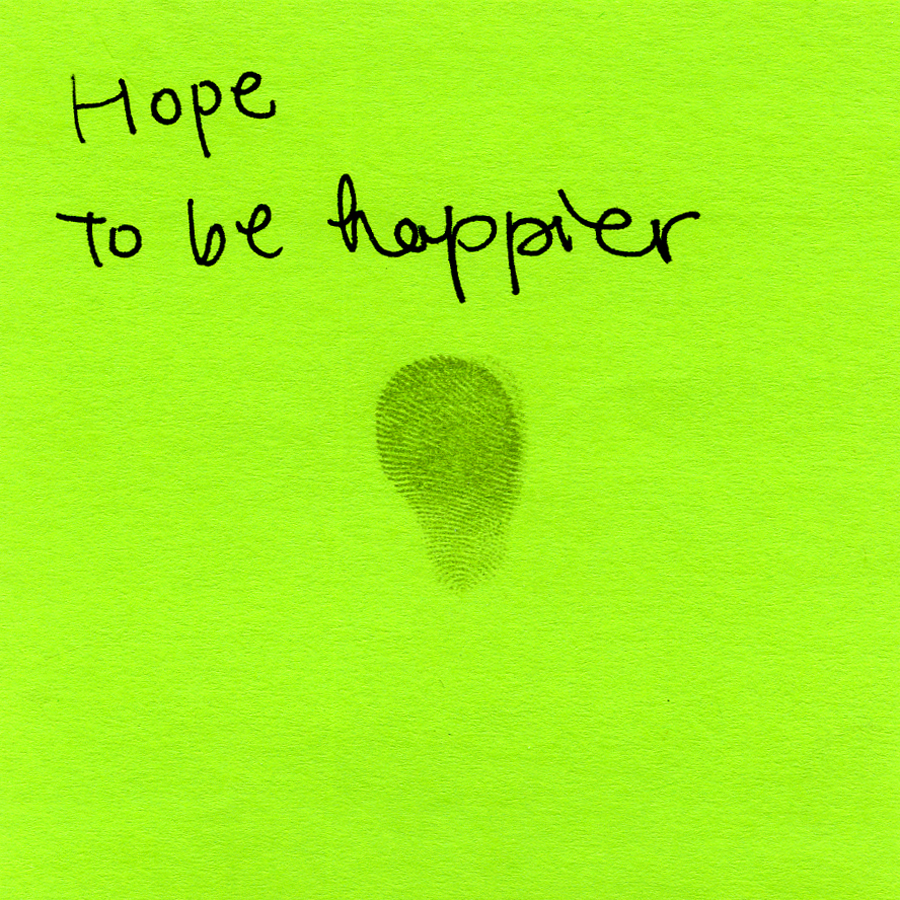 Hope
To be happier